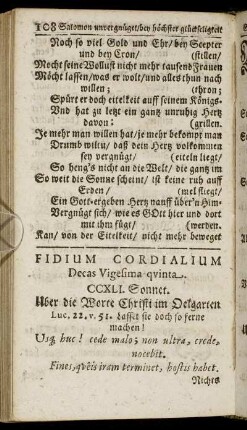 108 Salomon unvergnüget/bey höchster glückseligkeit
Noch so viel Gold und Ehr/bey Scepter
und bey Cron/ (stillen/
Mocht seine Wollust nicht mehr tausend Frauen
Möcht lassen/was er wolt/und alles thun nach
willen; (thron;
Spürt er doch eitelkeit auff seinem Königs-
Und hat zu letzt ein gantz unruhig Hertz
davon: (grillen.
Je mehr man willen hat/je mehr bekompt man
Drumb wiltu/ daß dein Hertz vollkommen
sey vergnügt/ (eiteln liegt/
So heng's nicht an die Welt/ die gantz im
So weit die Sonne scheint/ ist keine ruh auff
Erden/ (mel fliegt/
Ein Gott-ergeben Hertz nauff über'n Him-
Vergnügt sich/ wie es GOtt hier und dort
mit ihm fügt/ (werden.
Kan/ von der Eitelkeit/ nicht mehr beweget
FIDIUM CORDIALIUM
Decas Vigesima qvinta.
CCXLI. Sonnet.
Über die Worte Christi im Oelgarten
Luc. 22. v. 51. lasset sie doch so ferne
machen!
Usq; huc! cede malo; non ultra, crede,
nocebit.
Fines, qvêis iram terminet, hostis habet.
Nichts